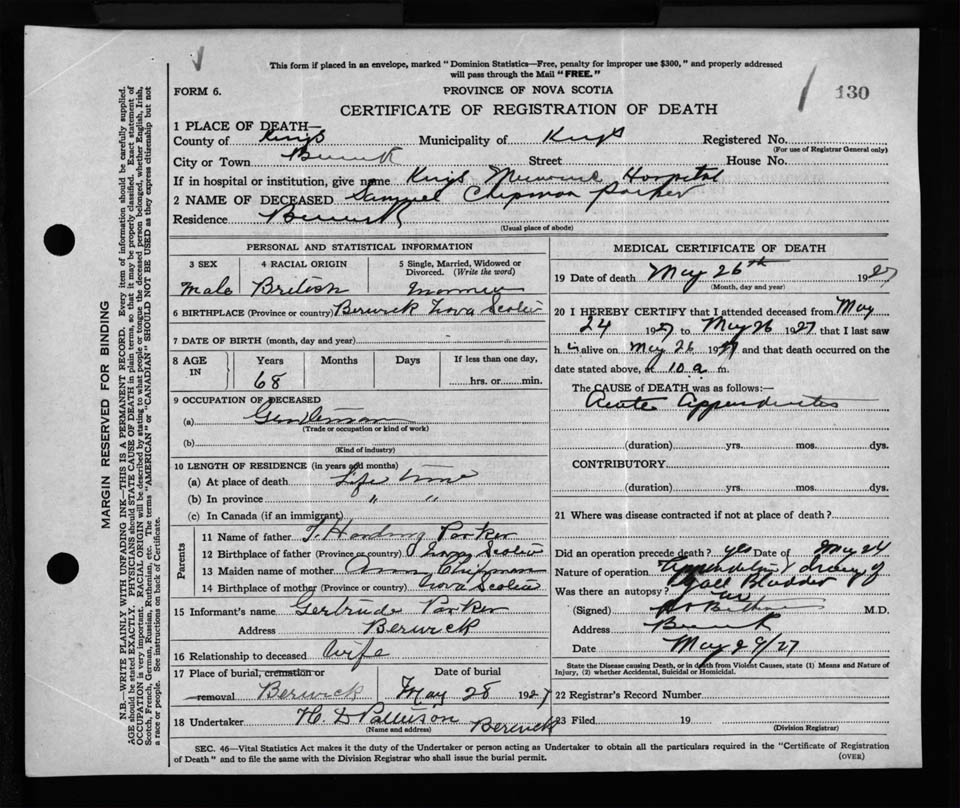 This form if placed in an envelope, marked "Dominion Statistics—Free, penalty for improper use $300," and properly addressed
will pass through the Mail "FREE."
FORM 6.
PROVINCE OF NOVA SCOTIA
130
CERTIFICATE OF REGISTRATION OF DEATH
1 PLACE OF DEATH—
County of Kings Municipality of Kings Registered No.
(For use of Registrar General only)
City or Town Berwick Street House No.
If in hospital or institution, give name Kings Hospital
2 NAME OF DECEASED Samuel Chipman Parker
Residence Berwick
(Usual place of abode)
PERSONAL AND STATISTICAL INFORMATION
3 SEX 4 RACIAL ORIGIN 5 Single, Married, Widowed or Divorced. (Write the word)
Male British
6 BIRTHPLACE (Province or country) Berwick Nova Scotia
7 DATE OF BIRTH (month, day and year)
8 AGE IN Years Months Days If less than one day,
68 hrs. or min.
9 OCCUPATION OF DECEASED
(a) Gentleman
(Trade or occupation or kind of work)
(b)
(Kind of industry)
10 LENGTH OF RESIDENCE (in years and months)
(a) At place of death Life time
(b) In province " "
(c) In Canada (if an immigrant)
Parents
11 Name of father T. Harding Parker
12 Birthplace of father (Province or country) Nova Scotia
13 Maiden name of mother Chipman
14 Birthplace of mother (Province or country) Nova Scotia
15 Informant's name Gertrude Parker
Address Berwick
16 Relationship to deceased Wife
17 Place of burial, cremation or removal Berwick
Date of burial May 28 1927
18 Undertaker H. D Berwick
(Name and address)
MEDICAL CERTIFICATE OF DEATH
19 Date of death May 26th 1927
(Month, day and year)
20 I HEREBY CERTIFY that I attended deceased from May
24 1927 to May 26 1927 that I last saw
h alive on May 26 1927 and that death occurred on the
date stated above, at 10 a m.
The CAUSE of DEATH was as follows:—
Acute Appendicitis
(duration) yrs. mos. dys.
CONTRIBUTORY
(duration) yrs. mos. dys.
21 Where was disease contracted if not at place of death?
Did an operation precede death? yes Date of May 24
Nature of operation Gall Bladder
Was there an autopsy?
(Signed) M.D.
Address Berwick
Date May 29/27
State the Disease causing Death, or in death from Violent Causes, state (1) Means and Nature of
Injury, (2) whether Accidental, Suicidal or Homicidal.
22 Registrar's Record Number
23 Filed 19
(Division Registrar)
SEC. 46—Vital Statistics Act makes it the duty of the Undertaker or person acting as Undertaker to obtain all the particulars required in the "Certificate of Registration
of Death" and to file the same with the Division Registrar who shall issue the burial permit.
(OVER)
MARGIN RESERVED FOR BINDING
N.B.—WRITE PLAINLY WITH UNFADING INK—THIS IS A PERMANENT RECORD. Every item of information should be carefully supplied.
AGE should be stated EXACTLY. PHYSICIANS should STATE CAUSE OF DEATH in plain terms, so that it may be properly classified. Exact statement of
OCCUPATION is very important. RACIAL ORIGIN will be described by stating to what people or tongue the deceased person belonged, whether English, Irish,
Scotch, French, German, Russian, Ruthenian, etc. The terms "AMERICAN" or "CANADIAN" SHOULD NOT BE USED as they express citizenship but not
a race or people. See instructions on back of Certificate.